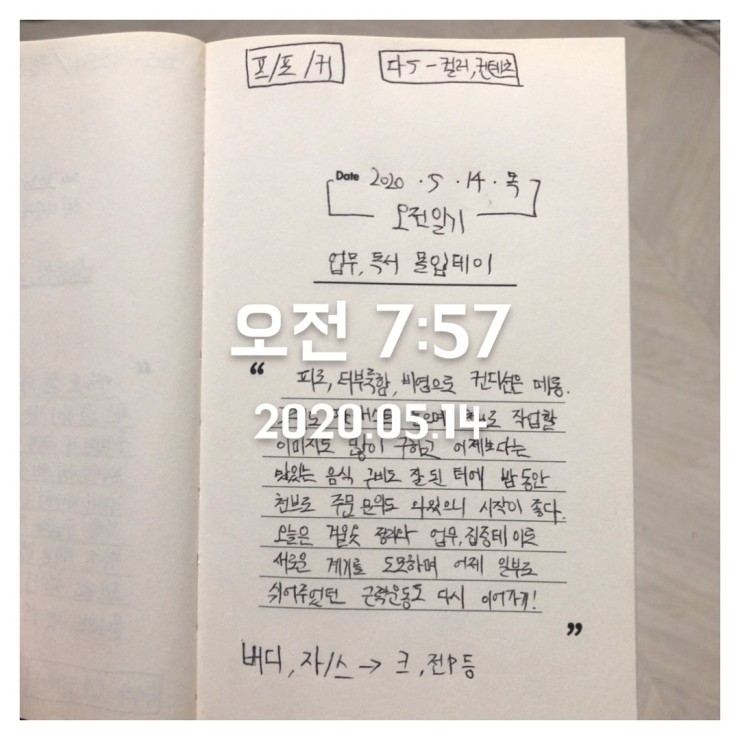 프/포/커
다5-컬러,컨텐츠
Date 2020 · 5 · 14 · 목
오전일기
업무, 독서 몰입데이
오전 7:57
“ 피로, 더부룩함, 비염으로 컨디션은 메롱.
2020.05.14
작업할
이미지도 많이 구하고 어제보다는
맛있는 음식 구비도 잘 된 터에 밤 동안
천브로 주문 문의도 와있으니 시작이 좋다.
오늘은 겨울옷 정리와 업무,집중데이로
새로운 계기를 도모하며 어제 일부로
쉬어주었던 근력운동도 다시 이어가기!
”
버디, 자/스 → 크, 전P등